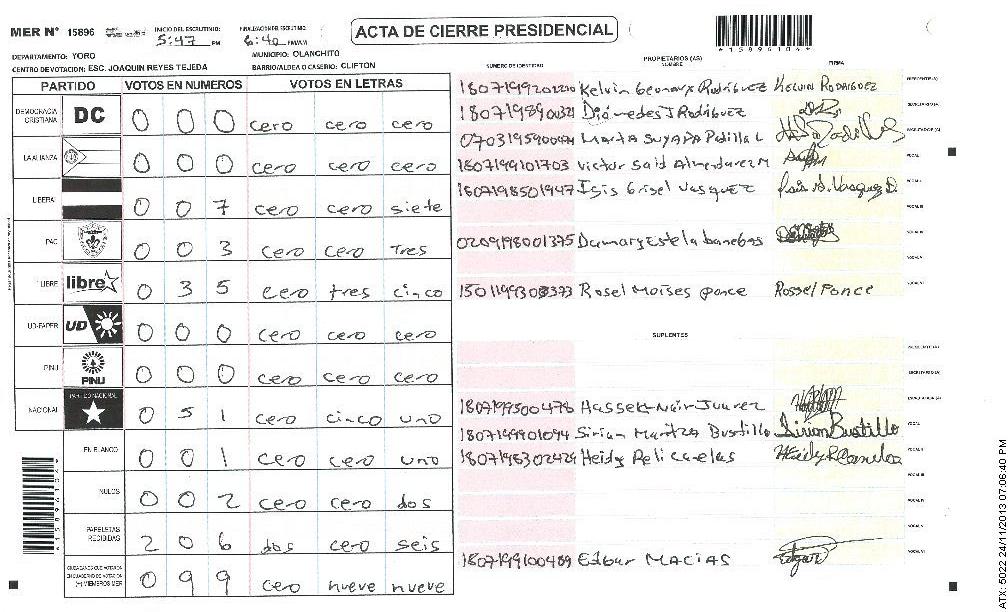 MER N° 15896 INICIO DEL ESCRUTINIO: 5:47 PM FINALIZACION DE ESCRUTINIO: 6:40 PM/AM ACTA DE CIERRE PRESIDENCIAL
*15896104*
DEPARTAMENTO: YORO MUNICIPIO: OLANCHITO
CENTRO DE VOTACION: ESC. JOAQUIN REYES TEJEDA BARRIO/ALDEA O CASERIO: CLIFTON
PARTIDO VOTOS EN NUMEROS VOTOS EN LETRAS
DEMOCRACIA CRISTIANA DC 0 0 0 cero cero cero
LA ALIANZA 0 0 0 cero cero cero
LIBERAL 0 0 7 cero cero siete
PAC 0 0 3 cero cero Tres
LIBRE libre 0 3 5 cero tres cinco
UD-FAPER UD 0 0 0 cero cero cero
PINU PINU 0 0 0 cero cero cero
NACIONAL PARTIDO NACIONAL 0 5 1 cero cinco uno
EN BLANCO 0 0 1 cero cero uno
NULOS 0 0 2 cero cero dos
PAPELETAS RECIBIDAS 2 0 6 dos cero seis
CIUDADANOS QUE VOTARON EN CUADERNO DE VOTACION (+) MIEMBROS MER 0 9 9 cero nueve nueve
NUMERO DE IDENTIDAD PROPIETARIOS (AS) NOMBRE FIRMA
Kelvin Geovany Rodriguez KELVIN RODRIGUEZ PRESIDENTE (A)
Diómedes J Rodríguez SECRETARIO (A)
Marta SUYAPA Padilla L ESCRUTADOR (A)
1807199101703 Victor Said Almendarez M VOCAL I
1807198501947 Isis Grisel Vasquez VOCAL II
VOCAL III
0209198001375 Damary Estela banegas VOCAL IV
VOCAL V
Rosel Moises ponce Rossel Ponce VOCAL VI
SUPLENTES
PRESIDENTE (A)
SECRETARIO (A)
1807199500478 Nair Juarez ESCRUTADOR (A)
1807199901094 Sirian Maritza Bustillo Sirian Bustillo VOCAL I
1807198302424 Heidy VOCAL II
VOCAL III
VOCAL IV
VOCAL V
1807199100489 Edgar MACIAS Edgar VOCAL VI
*15896104*
ATX: 5022 24/11/2013 07:06:40 PM